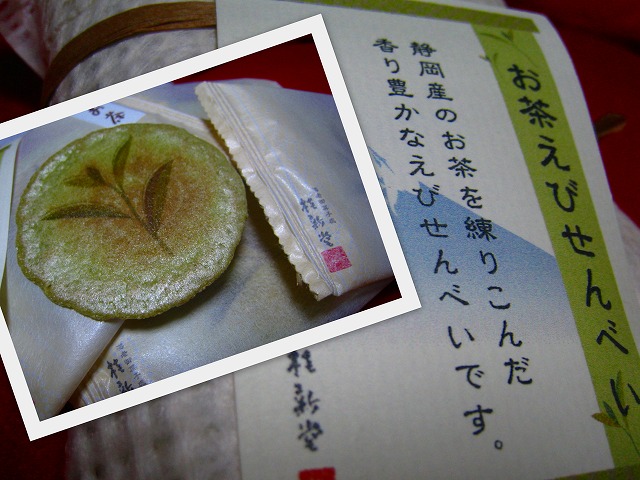 お茶えびせんべい
静岡産のお茶を練りこんだ
香り豊かなえびせんべいです。
桂新堂
お茶
桂新堂
桂新堂